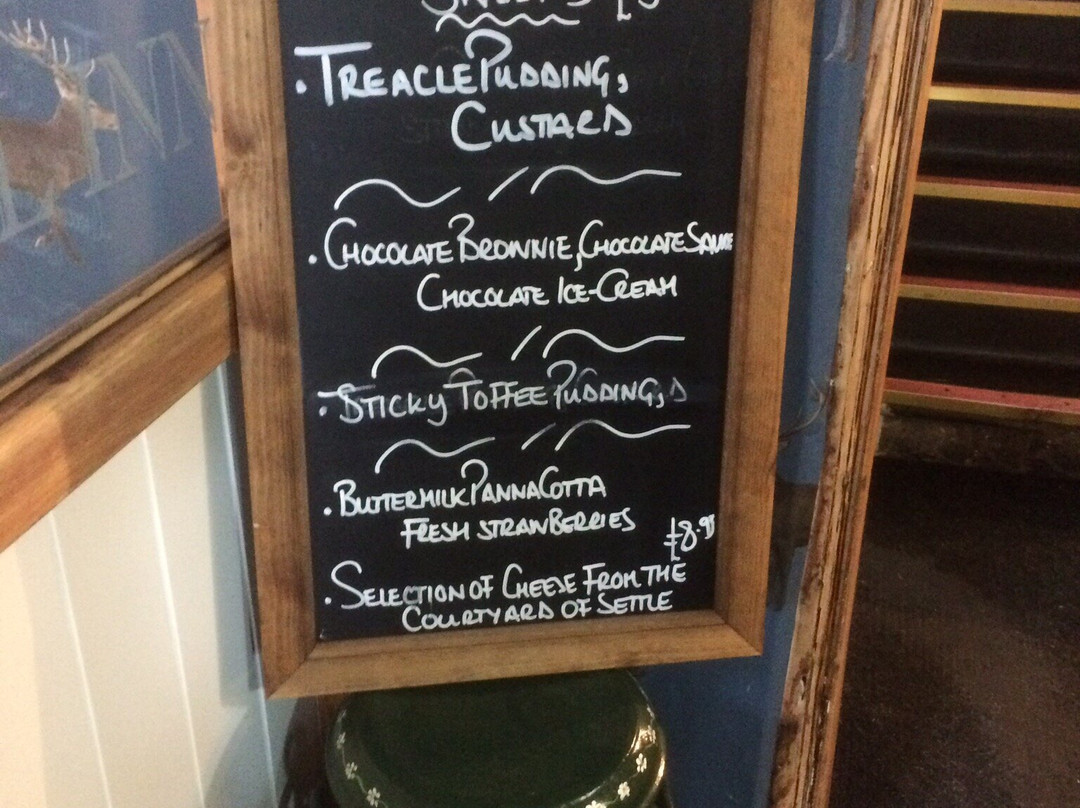 • TREACLE PUDDING,
CUSTARD
• CHOCOLATE BROWNIE, CHOCOLATE SAUCE
CHOCOLATE ICE-CREAM
• STICKY TOFFEE PUDDING,
• BUTTERMILK PANNACOTTA
FRESH STRAWBERRIES
£8.95
• SELECTION OF CHEESE FROM THE
COURTYARD OF SETTLE